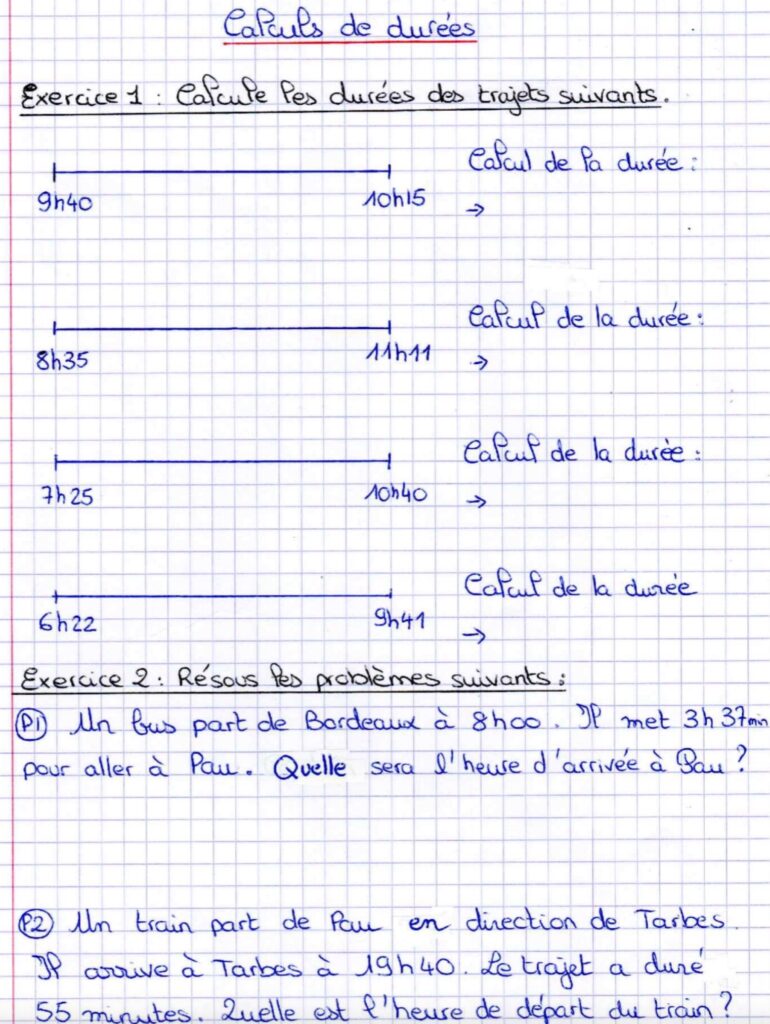 Calculs de durées
Exercice 1 : Calcule les durées des trajets suivants.
Calcul de la durée :
9h40 10h15 →
Calcul de la durée :
8h35 11h11 →
Calcul de la durée :
7h25 10h40 →
Calcul de la durée
6h22 9h41 →
Exercice 2 : Résous les problèmes suivants :
P1 Un bus part de Bordeaux à 8h00. Il met 3h37min
pour aller à Pau. Quelle sera l'heure d'arrivée à Pau ?
P2 Un train part de Pau en direction de Tarbes.
Il arrive à Tarbes à 19h40. Le trajet a duré
55 minutes. Quelle est l'heure de départ du train ?